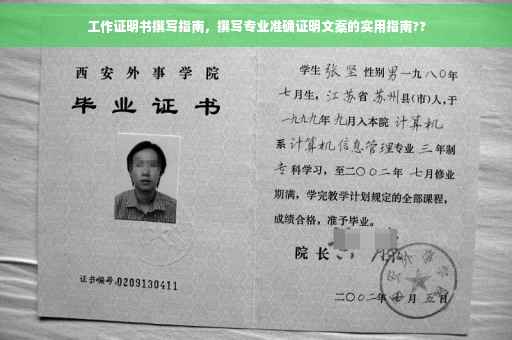 工作证明书撰写指南，撰写专业准确证明文案的实用指南??
西安外事学院
毕业证书
证书编号:0209130411
学生 张坚 性别男 一九八〇年
七月生，江苏省苏州县(市)人，于
一九九九年九月入本院 计算机
系 计算机信息管理 专业 三 年制
专科学习，至二〇〇二年 七月修业
期满，学完教学计划规定的全部课程，
成绩合格，准予毕业。
院长
二〇〇二年 月 五日